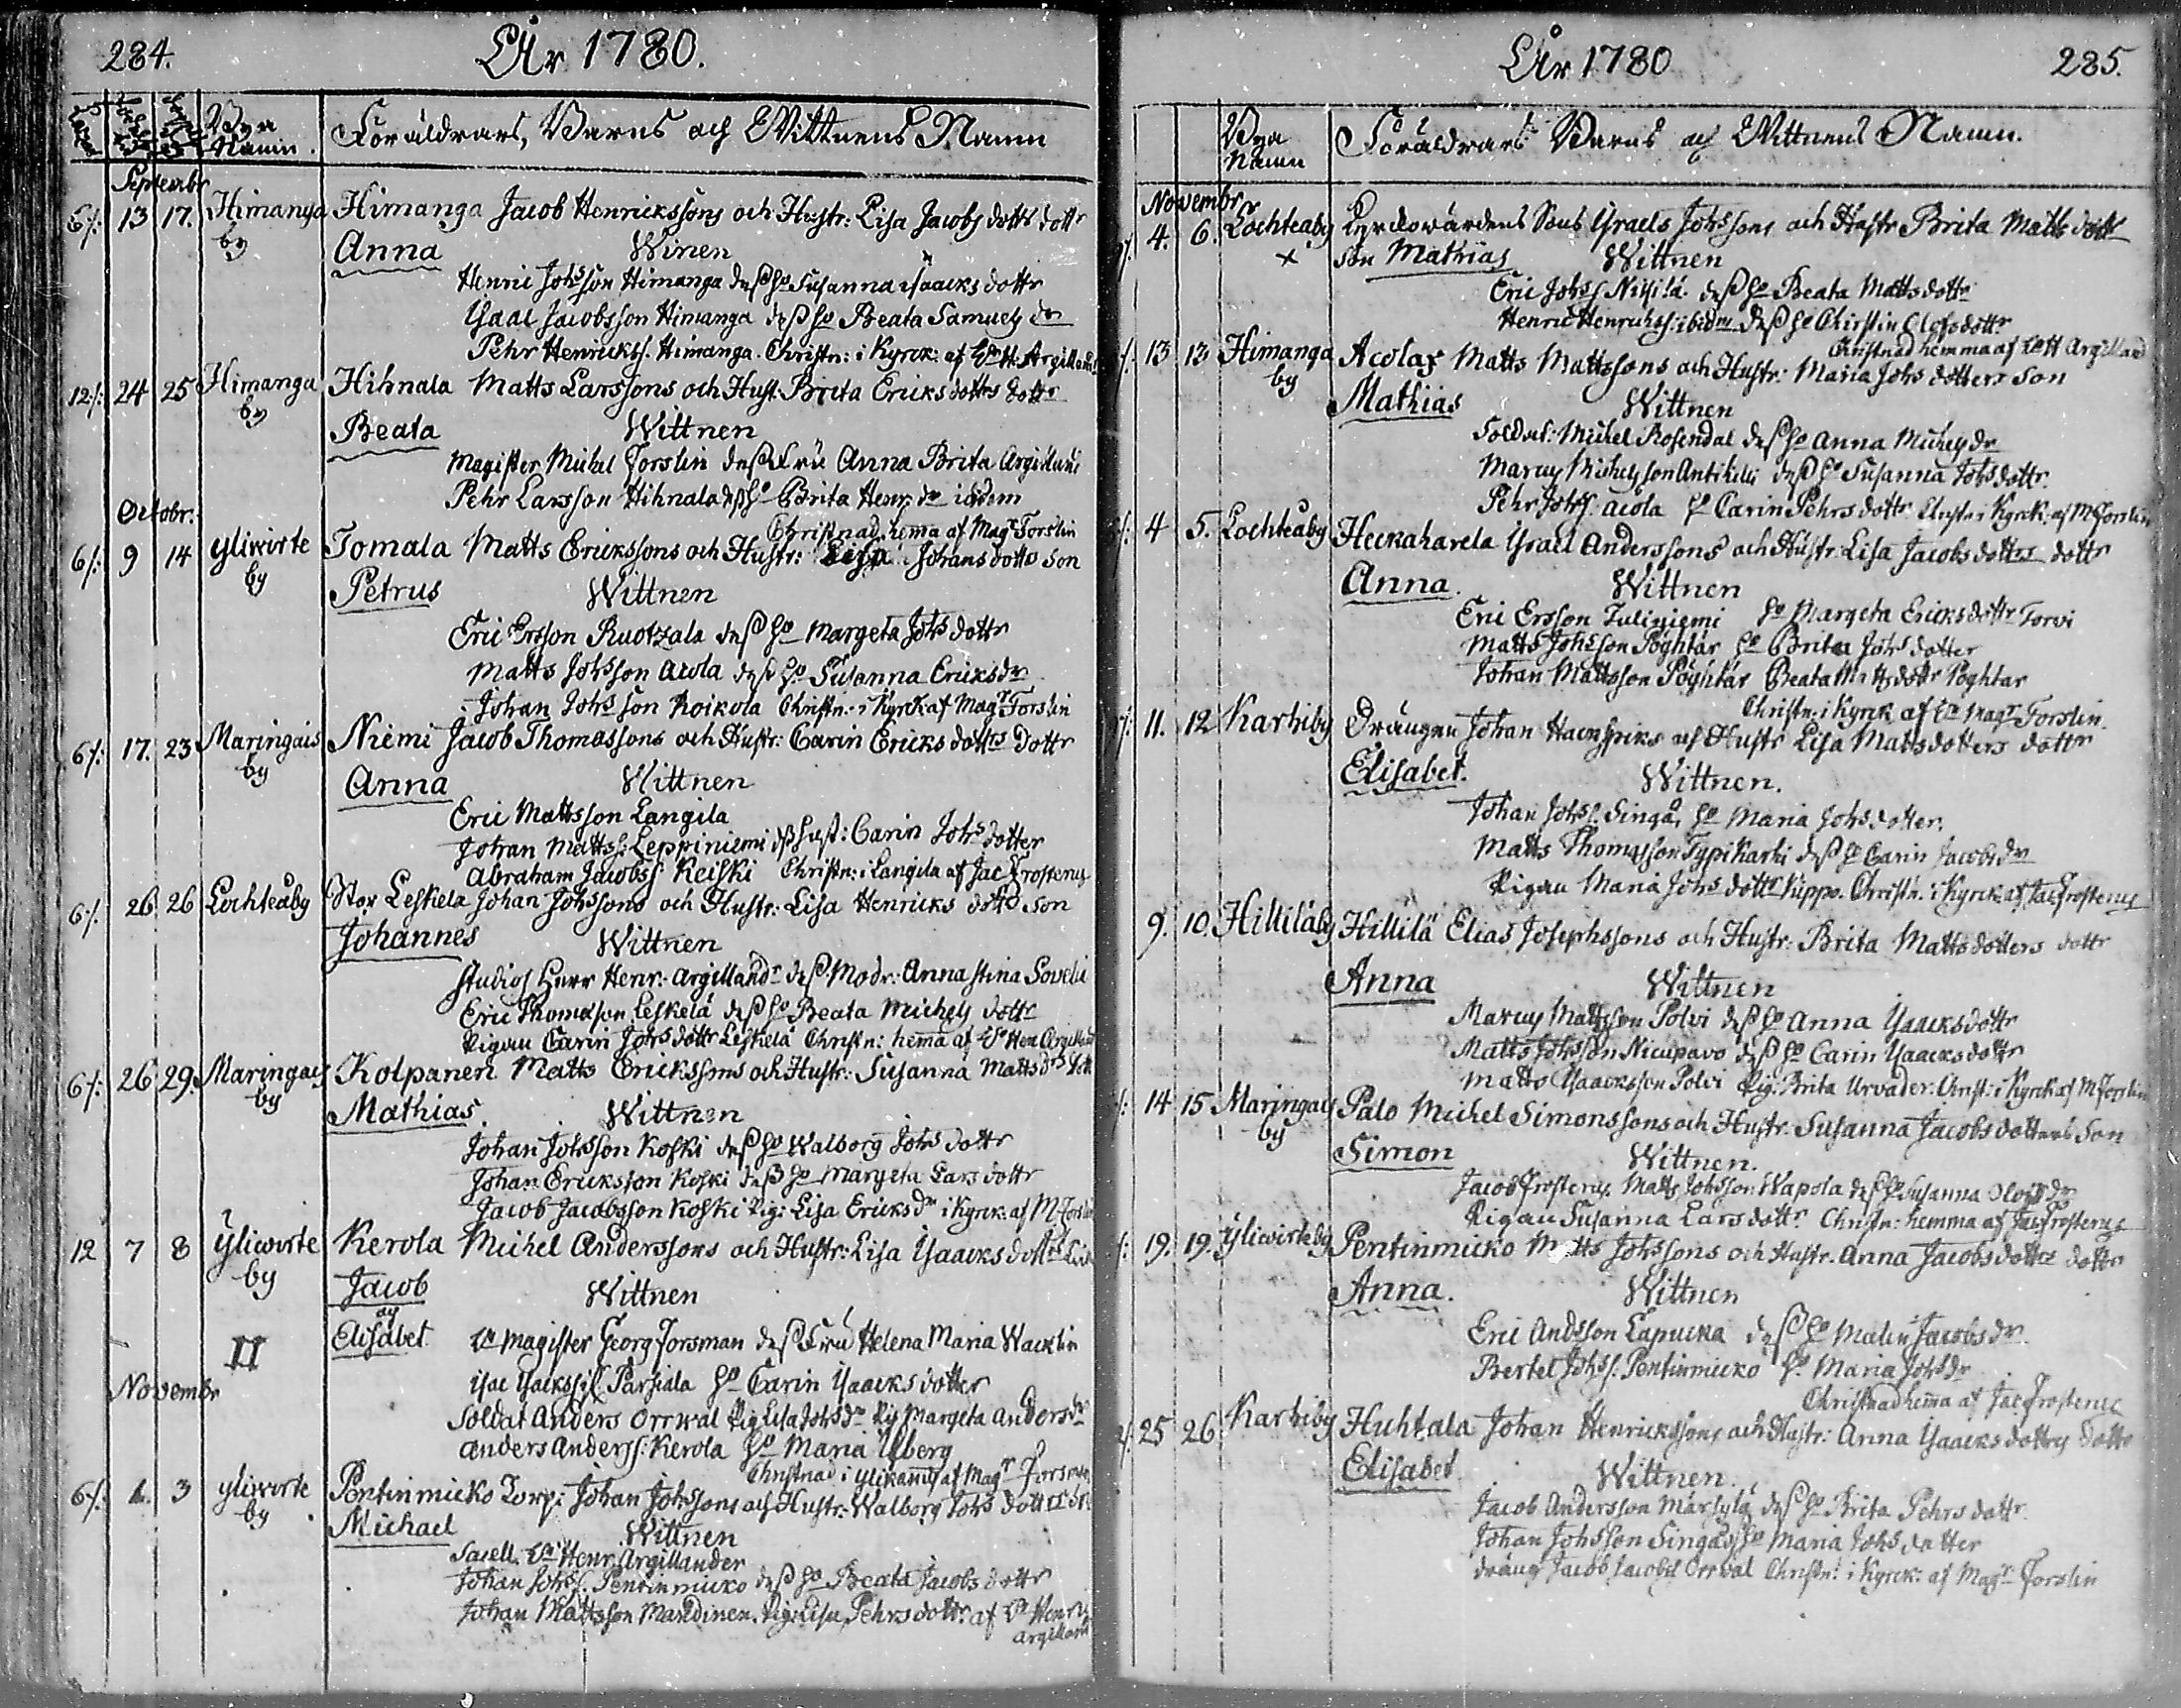 284.
År 1780.
Bya Namn. Föräldrars, Barns och Wittnens Namn
Septembr
6/: 13 17. Himanga by Himanga Jacob Henrickssons och Hustr: Lisa Jacobs dotts dottr
Anna Winen
Henric Johsson Himanga dess ho Susanna Isaacks dottr
Isaac Jacobsson Himanga dess ho Beata Samuels dr
Pehr Henrickss. Himanga. Christn: i Kyrck: af Hr H. Argilland:
12/: 24 25 Himanga by Hihnala Matts Larssons och Hust. Brita Ericksdotters dottr
Beata Wittnen
Magister Michel Forslin dess Fru Anna Brita Argilland
Pehr Larsson Hihnala dess ho Brita Henr. dr ibidem
Octobr:
Christnad hema af Magr Forslin
6/: 9 14 ylivirte by Tomala Matts Erickssons och Hustr: Lisa Johans dotts son
Petrus Wittnen
Eric Ersson Ruotzala dess ho Margeta Johs dottr
Matts Johsson Acola dess ho Susanna Ericksdr
Johan Johsson Roikola Christn: i Kyrck af Magr Forslin
6/: 17. 23 Maringais by Niemi Jacob Thomassons och Hustr: Carin Ericks dotters dottr
Anna Wittnen
Eric Mattsson Langila
Johan Mattss: Leppiniemi dss hust: Carin Johs dotter
Abraham Jacobss Keiski Christn: i Langila af Jac Frosterus
6/. 26 26 Lochteåby Stor Leskela Johan Johssons och Hustr: Lisa Henricks dottrs son
Johannes Wittnen
Studios Herr Henr: Argillandr dess Modr: Anna Stina Sovelii
Eric Thomasson Leskelä dess ho Beata Michels dottr
Pigan Carin Johs dottr Leskelä Christn: hema af Hr Henr Argilland
6/: 26 29. Maringais by Kolpanen Matts Erickssons och Hustr: Susanna Matts drs dottr
Mathias. Wittnen
Johan Johsson Koski dess ho Walborg Johs dottr
Johan Ericksson Koski dess ho Margeta Lars dottr
Jacob Jacobsson Koski Pig: Lisa Ericks dr i Kyrck: af M Forslin
12 7 8 ylivirte by Kerola Michel Anderssons och Hustr: Lisa Isaacks dottrs
Jacob Wittnen
och
Elisabet Hr Magister Georg Forsman dess Fru Helena Maria Wacklin
II
Isac Isackss Parsiala ho Carin Isaacks dotter
Novembr
Soldat Anders Orrwal Pig Lisa Johs dr Pig Margeta Andersdr
Anders Anderss: Kerola ho Maria Ulberg
Christnad i ylikannus af Magr Forsman
6/. 1. 3 ylivirte by Pentinmicko Torp: Johan Johssons och Hustr: Walborg Johs dotters
Michael Wittnen
Sacell. Hr Henr. Argillander
Johan Johss. Pentinmicko dess ho Beata Jacobs dottr
Johan Mattsson Marckinen. Pig: Lisa Pehrs dottr. af Hr Henr
Argilland
År 1780
285.
Bya Namn Föräldrars Barns och Wittnens Namn.
Novembr
4. 6. Lochteaby Kyrckovärdens Sons Israels Johssons och Hustr Brita Matts dottr
x son Mathias Wittnen
Eric Johss Niskila. dess ho Beata Matts dottr
Henric Henrickss: ibidm dess ho Chirstin Olofsdottr
Christnad hemma af Hr H Argilland
13 13 Himanga by Acolas Matts Mattssons och Hustr: Maria Johs dotters son
Mathias Wittnen
Soldat: Michel Rosendal dess ho Anna Michels dr
Marcus Michelsson Antikeli dess ho Susanna Johs dottr.
Pehr Johss: acola ho Carin Pehrs dottr. Christn i Kyrck. af M Forslin
4 5. Lochteåby Heckaharela Israel Anderssons och Hustr: Lisa Jacobs dotters dottr
Anna. Wittnen
Eric Ersson Juliniemi ho Margeta Ericks dottr Torvi
Matts Johsson Pöghtär ho Brita Johs dotter
Johan Mattsson Pöyhtär Beata Matts dottr Pöghtar
Christn: i Kyrck af Hr Magr Forslin.
11. 12 Karhiby Drängen Johan Hackspiks och Hustr Lisa Mattsdotters dottr
Elisabet. Wittnen.
Johan Johss. Singå, ho Maria Johs dotter.
Matts Thomasson Typikarhi dess ho Carin Jacobs dr
Pigan Maria Johs dottr Kippo. Christn: i Kyrck af Jac Frosterus
9. 10. Hilliläby Hillilä Elias Josephssons och Hustr: Brita Mattsdotters dottr
Anna Wittnen
Marcus Mattsson Polvi dess ho Anna Isaacks dottr
Matts Johsson Nicupavo dess ho Carin Isaacks dottr
Matts Isaacksson Polvi Pig: Brita Urvader: Christ: i Kyrck af M Forslin
14 15 Maringais by Palo Michel Simonssons och Hustr: Susanna Jacobs dotters Son
Simon Wittnen.
Jacob Frosterus. Matts Johsson Wapola dess ho Susanna Olofs dr
Pigan Susanna Lars dottr Christn: hemma af Jac Frosterus
19. 19. ylivirteby Pentinmicko Matts Johssons och Hustr. Anna Jacobs dotters dottr
Anna. Wittnen
Eric Andsson Lapucka dess ho Malin Jacobs dr
Bertel Johss. Pentinmicko ho Maria Johs dr
Christnad hema af Jac Frosterus
25 26 Karhiby Huhtala Johan Henrickssons och Hustr: Anna Isaacks dotters dottr
Elisabet Wittnen.
Jacob Andersson Märsylä dess ho Brita Pehrs dottr
Johan Johsson Singås ho Maria Johs dotter
dräng Jacob Jacobss Orrval Christn: i Kyrck: af Magr Forslin